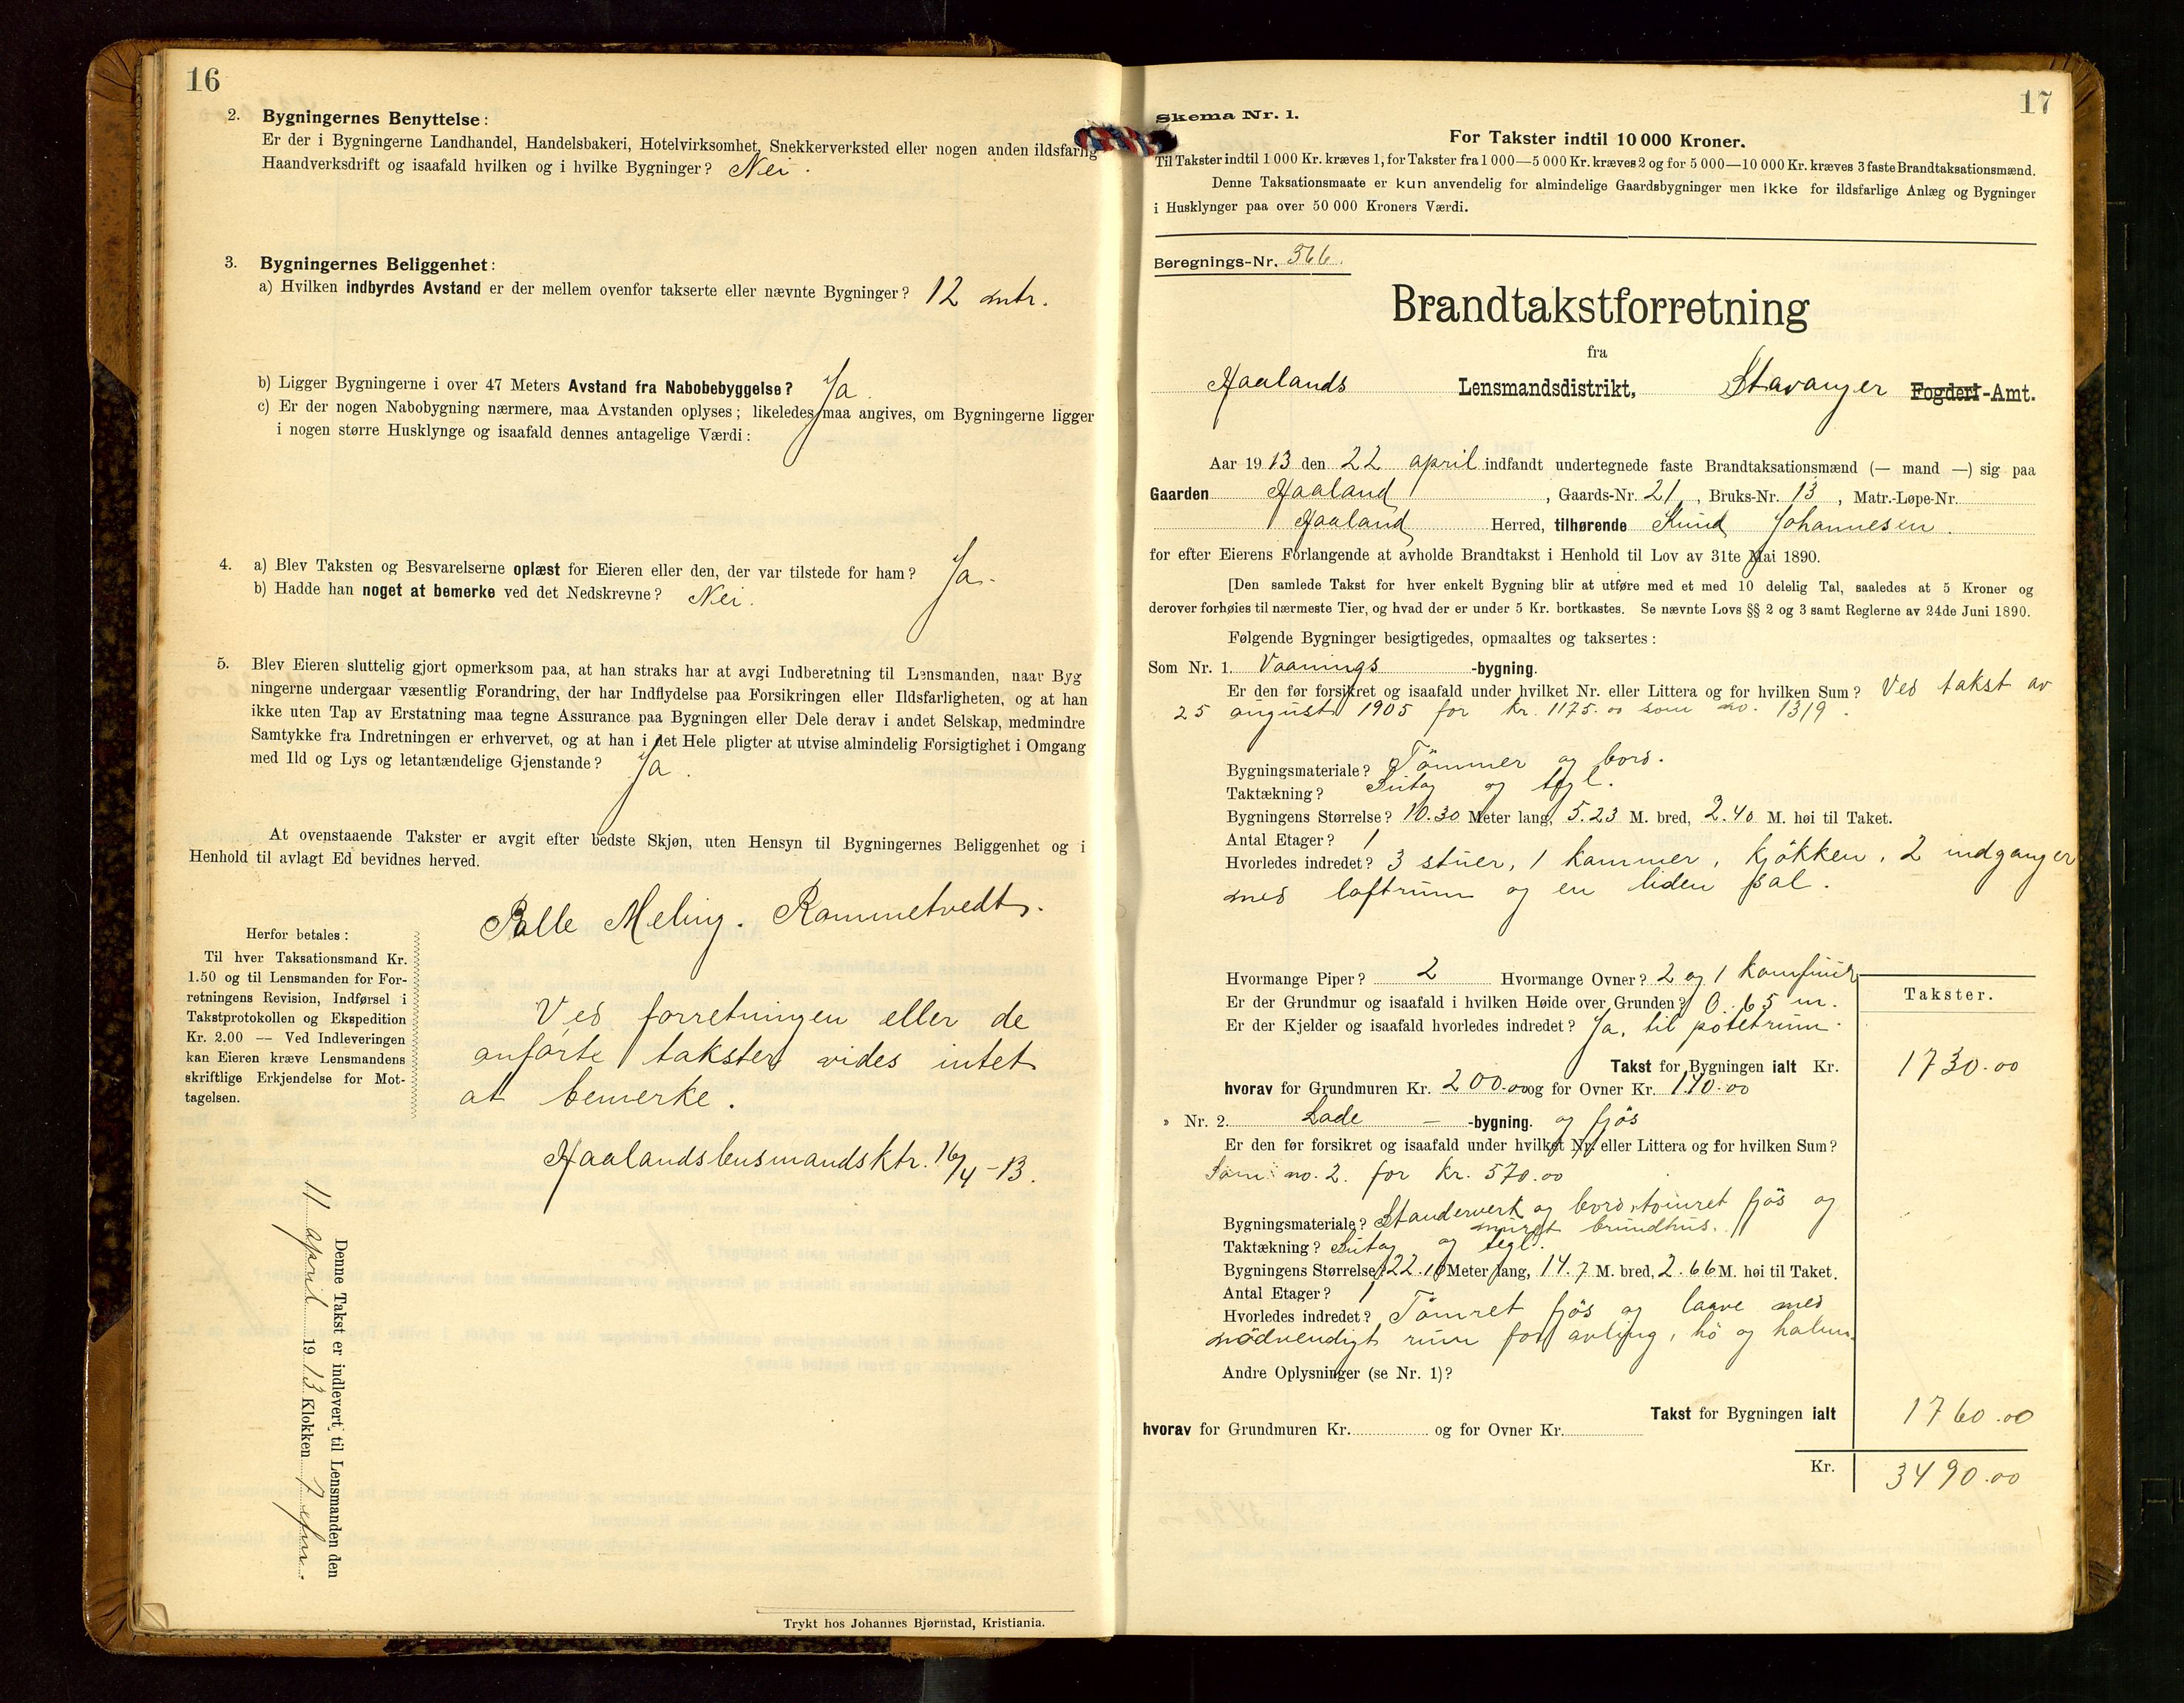 16
2. Bygningernes Benyttelse:
Er der i Bygningerne Landhandel, Handelsbakeri, Hotelvirksomhet, Snekkerverksted eller nogen anden ildsfarlig
Haandverksdrift og isaafald hvilken og i hvilke Bygninger? Nei.
3. Bygningernes Beliggenhet:
a) Hvilken indbyrdes Avstand er der mellem ovenfor takserte eller nævnte Bygninger? 12 mtr.
b) Ligger Bygningerne i over 47 Meters Avstand fra Nabobebyggelse? Ja.
c) Er der nogen Nabobygning nærmere, maa Avstanden oplyses; likeledes maa angives, om Bygningerne ligger
i nogen større Husklynge og isaafald dennes antagelige Værdi:
4. a) Blev Taksten og Besvarelserne oplæst for Eieren eller den, der var tilstede for ham? Ja.
b) Hadde han noget at bemerke ved det Nedskrevne? Nei.
5. Blev Eieren sluttelig gjort opmerksom paa, at han straks har at avgi Indberetning til Lensmanden, naar Byg
ningerne undergaar væsentlig Forandring, der har Indflydelse paa Forsikringen eller Ildsfarligheten, og at han
ikke uten Tap av Erstatning maa tegne Assurance paa Bygningen eller Dele derav i andet Selskap, medmindre
Samtykke fra Indretningen er erhvervet, og at han i det Hele pligter at utvise almindelig Forsigtighet i Omgang
med Ild og Lys og letantændelige Gjenstande? Ja.
At ovenstaaende Takster er avgit efter bedste Skjøn, uten Hensyn til Bygningernes Beliggenhet og i
Henhold til avlagt Ed bevidnes herved.
Meling. Rammetvedt.
Herfor betales:
Til hver Taksationsmand Kr.
1.50 og til Lensmanden for For-
retningens Revision, Indførsel i
Takstprotokollen og Ekspedition
Kr. 2.00 — Ved Indleveringen
kan Eieren kræve Lensmandens
skriftlige Erkjendelse for Mot-
tagelsen.
Ved forretningen eller de
anførte takster vides intet
at bemerke.
Haalandslensmandsktr. 16/4-13.
Denne Takst er indlevert til Lensmanden den
11 april 1913 Klokken 7 efm.
Trykt hos Johannes Bjørnstad, Kristiania.
17
Skema Nr. 1.
For Takster indtil 10 000 Kroner.
Til Takster indtil 1 000 Kr. kræves 1, for Takster fra 1 000—5 000 Kr. kræves 2 og for 5 000—10 000 Kr. kræves 3 faste Brandtaksationsmænd.
Denne Taksationsmaate er kun anvendelig for almindelige Gaardsbygninger men ikke for ildsfarlige Anlæg og Bygninger
i Husklynger paa over 50 000 Kroners Værdi.
Beregnings-Nr. 566.
Brandtakstforretning
fra
Haalands Lensmandsdistrikt, Stavanger Fogderi-Amt.
Aar 1913 den 22 april indfandt undertegnede faste Brandtaksationsmænd (— mand —) sig paa
Gaarden Haaland, Gaards-Nr. 21, Bruks-Nr. 13, Matr.-Løpe-Nr.
Haaland Herred, tilhørende Knud Johannesen.
for efter Eierens Forlangende at avholde Brandtakst i Henhold til Lov av 31te Mai 1890.
[Den samlede Takst for hver enkelt Bygning blir at utføre med et med 10 delelig Tal, saaledes at 5 Kroner og
derover forhøies til nærmeste Tier, og hvad der er under 5 Kr. bortkastes. Se nævnte Lovs §§ 2 og 3 samt Reglerne av 24de Juni 1890.
Følgende Bygninger besigtigedes, opmaaltes og taksertes:
Som Nr. 1. Vaanings-bygning.
Er den før forsikret og isaafald under hvilket Nr. eller Littera og for hvilken Sum? Ved takst av
25 august 1905 for kr. 1175.00 som no. 1319.
Bygningsmateriale? Tømmer og bord.
Taktækning? Sutag og tegl.
Bygningens Størrelse? 10.30 Meter lang, 5.23 M. bred, 2.40 M. høi til Taket.
Antal Etager? 1
Hvorledes indredet? 3 stuer, 1 kammer, kjøkken, 2 indganger
med loftrum og en liden sal.
Hvormange Piper? 2 Hvormange Ovner? 2 og 1 komfur
Er der Grundmur og isaafald i hvilken Høide over Grunden? 0.65 m.
Er der Kjelder og isaafald hvorledes indredet? Ja, til potetrum.
Takster.
Takst for Bygningen ialt Kr. 1730.00
hvorav for Grundmuren Kr. 200.00 og for Ovner Kr. 140.00
" Nr. 2. Lade — -bygning. og fjøs
Er den før forsikret og isaafald under hvilket Nr. eller Littera og for hvilken Sum?
Som no. 2. for kr. 570.00
Bygningsmateriale? Standerverk og bord, tømret fjøs og
muret brundhus.
Taktækning? Sutag og tegl.
Bygningens Størrelse? 22.10 Meter lang, 14.7 M. bred, 2.66 M. høi til Taket.
Antal Etager? 1
Hvorledes indredet? Tømret fjøs og laave med
nødvendigt rum for avling, hø og halm.
Andre Oplysninger (se Nr. 1)?
Takst for Bygningen ialt 1760.00
hvorav for Grundmuren Kr. og for Ovner Kr.
Kr. 3490.00